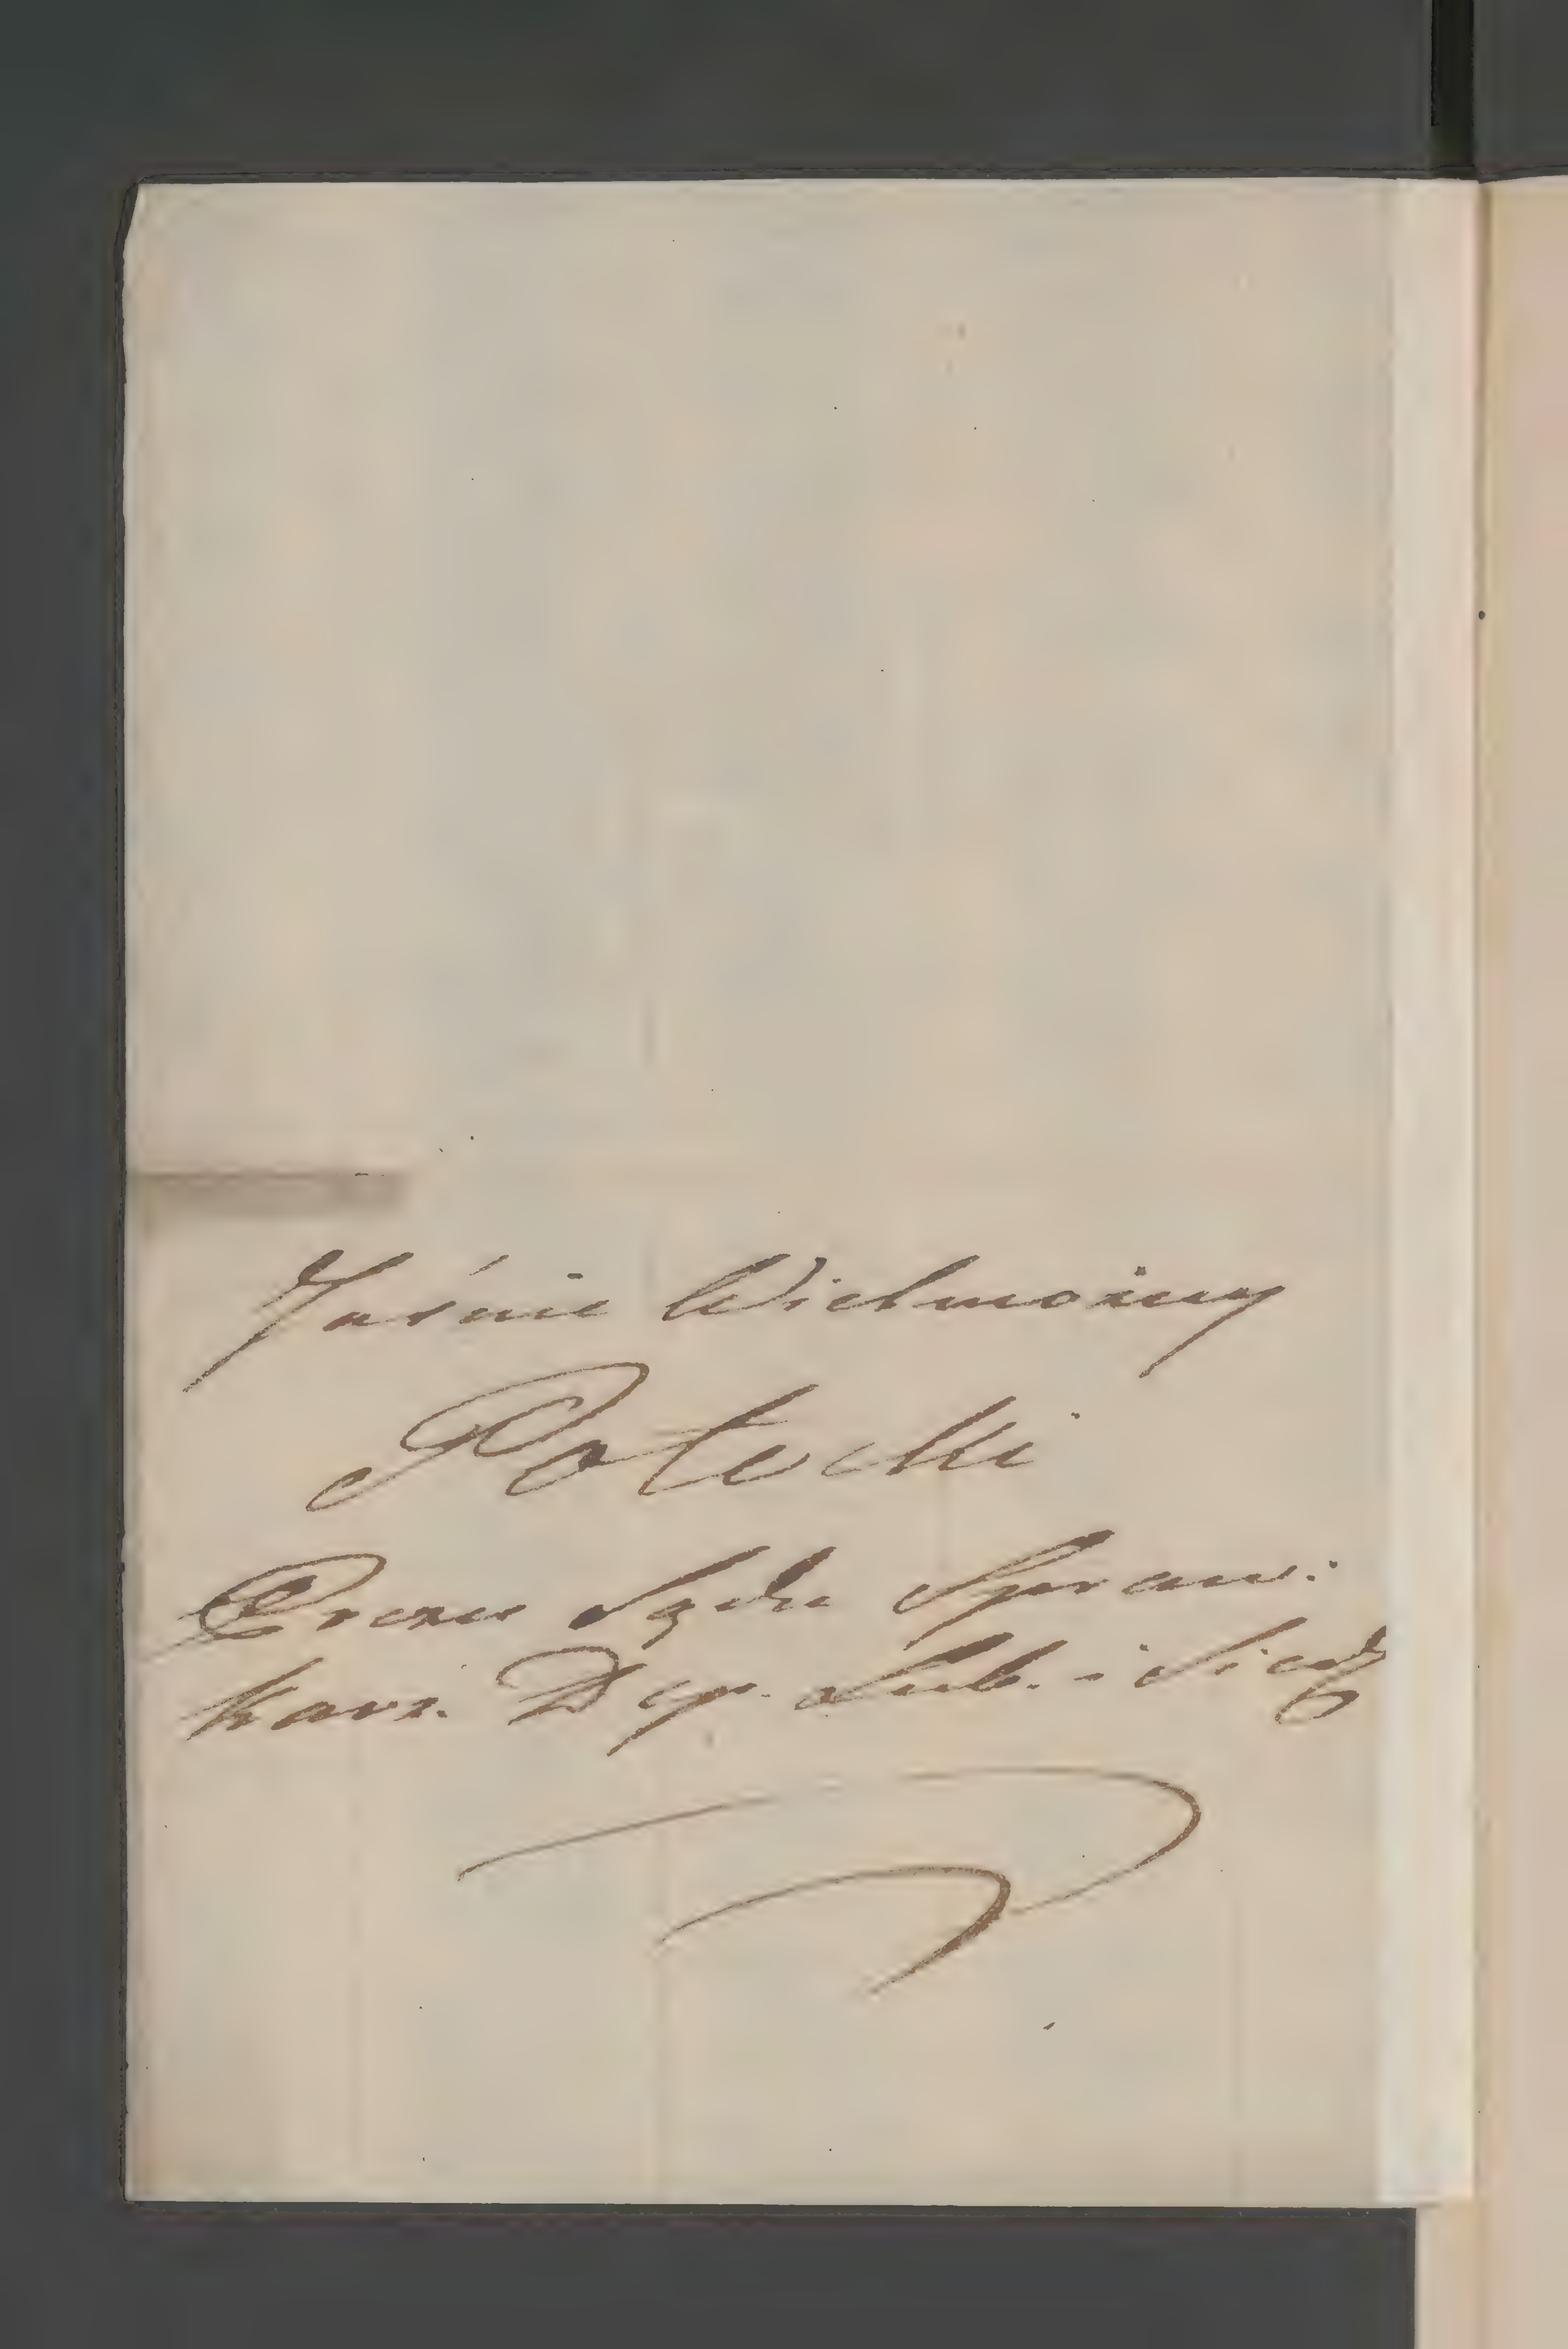 Jaśnie Wielmożny
Potocki
Prezes Sądu Spraw:
karz. Dep. Lub. i Siedl